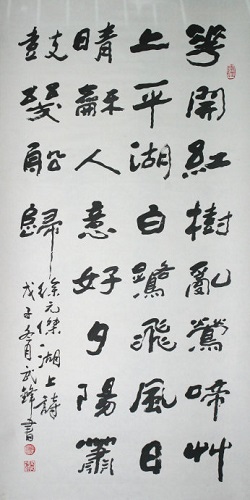 花開紅樹亂鶯啼艸
上平湖白鷺飛風日
晴龢人意好夕陽簫
鼓幾船歸
徐元傑湖上詩
戊子冬月武鋒書